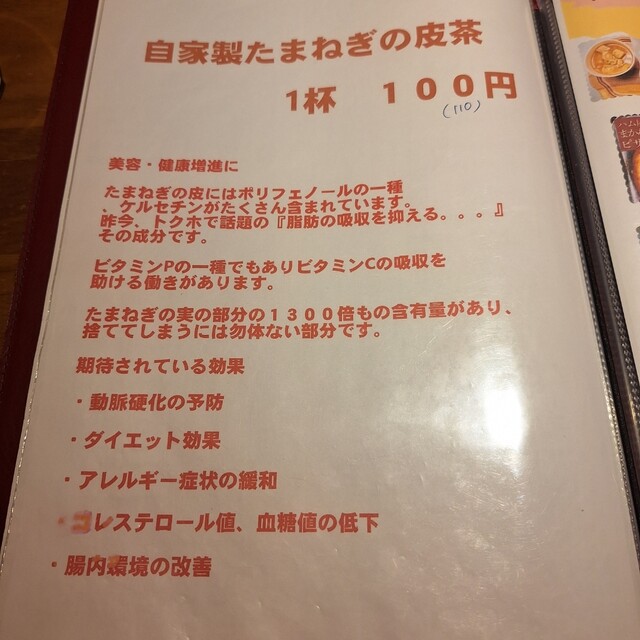 自家製たまねぎの皮茶
1杯 100円
(110)
美容・健康増進に
たまねぎの皮にはポリフェノールの一種
、ケルセチンがたくさん含まれています。
昨今、トクホで話題の『脂肪の吸収を抑える。。。』
その成分です。
ビタミンPの一種でもありビタミンCの吸収を
助ける働きがあります。
たまねぎの実の部分の1300倍もの含有量があり、
捨ててしまうには勿体ない部分です。
期待されている効果
・動脈硬化の予防
・ダイエット効果
・アレルギー症状の緩和
・コレステロール値、血糖値の低下
・腸内環境の改善